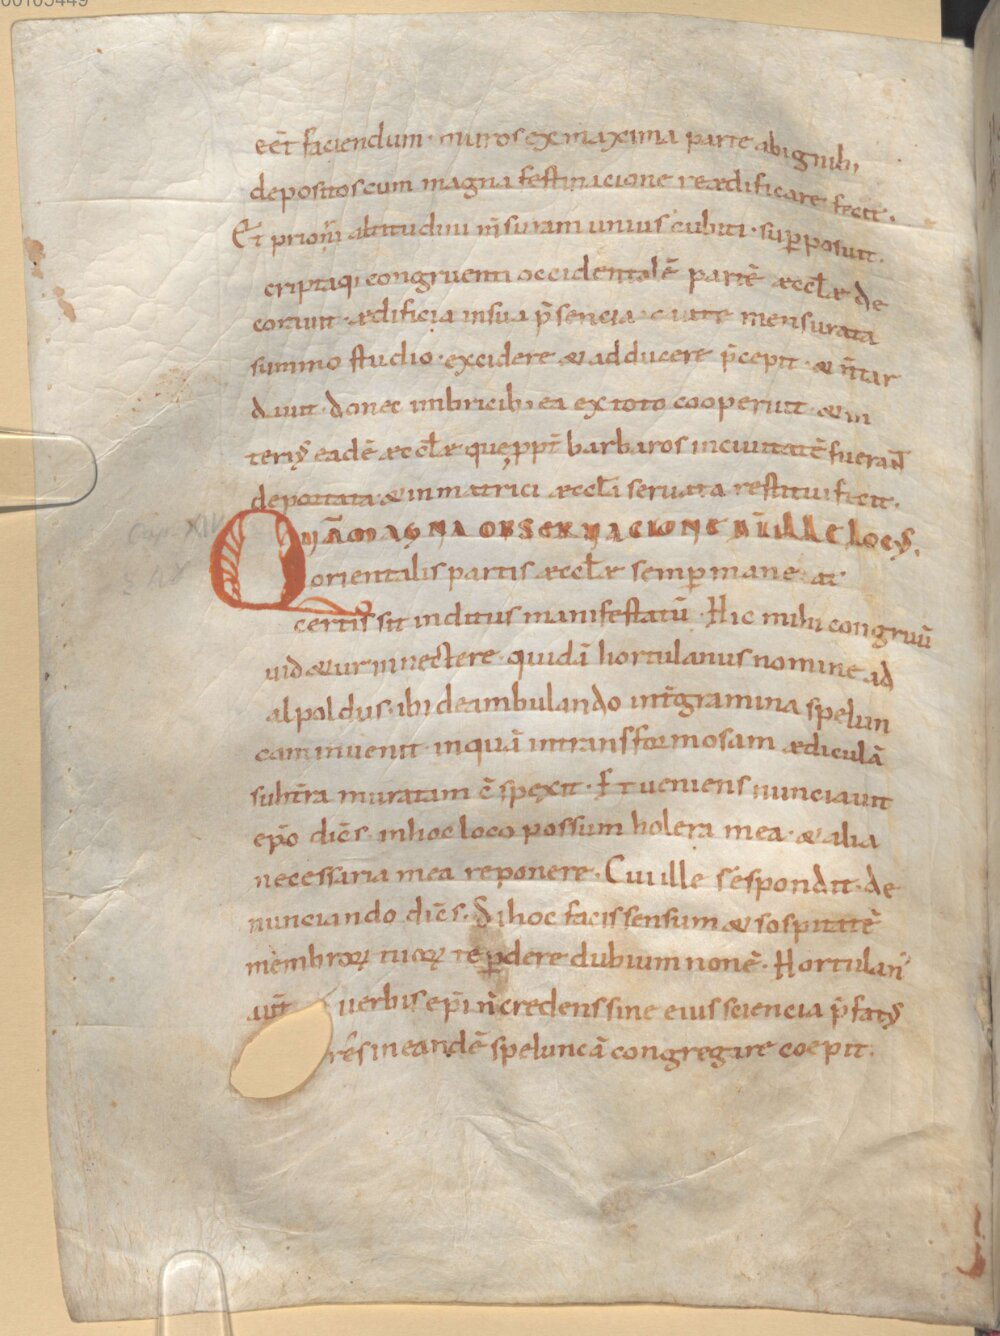 00103449
eēt faciendum· muros ex maxima parte ab ignib;
depositos cum magna festinacione reædificare fecit.
Et prioris altitudini mensuram unius cubiti· sup̄posuit.
criptaq; congruenti occidentalē partē æccl̄æ de
corauit· ædificia in sua p̄sencia caute mensurata
summo studio· excidere & adducere p̄cepit· & n̄ tar
dauit· donec imbricib; ea ex toto cooperuit· & mi
teriȝ eadē æccl̄æ que ppt̄ barbaros in ciuitatē fuerant̄
deportata· & in matrici æccl̄a seruata restitui fecit·
QUĀ MAGNA OBSERUACIONE N ILLE LOCꝰ·
orientalis partis æccl̄æ semp̄ maneat
certis sit inditus manifestatū· Hic mihi congruū
uid&ur innectere· quidā hortulanus nomine ad
alpoldus· ibi deambulando int̄ gramina spelun
cam inuenit· in quā intrans formosam ædiculā
subt̄ra muratam c̄spexit· Et ueniens nunciauit
ep̄o dic̄s· in hoc loco possum holera mea· & alia
necessaria mea reponere· Cui ille respondit· de
nunciando dic̄s· Si hoc facis sensum & sospitatē
membroꝝ tuoꝝ te p̄dere dubium non ē· Hortulanꝰ
aūt uerbis ep̄i n̄ credens sine eius sciencia p̄fatꝰ
rēs in eandē speluncā congregare coepit·
Cap. XIV